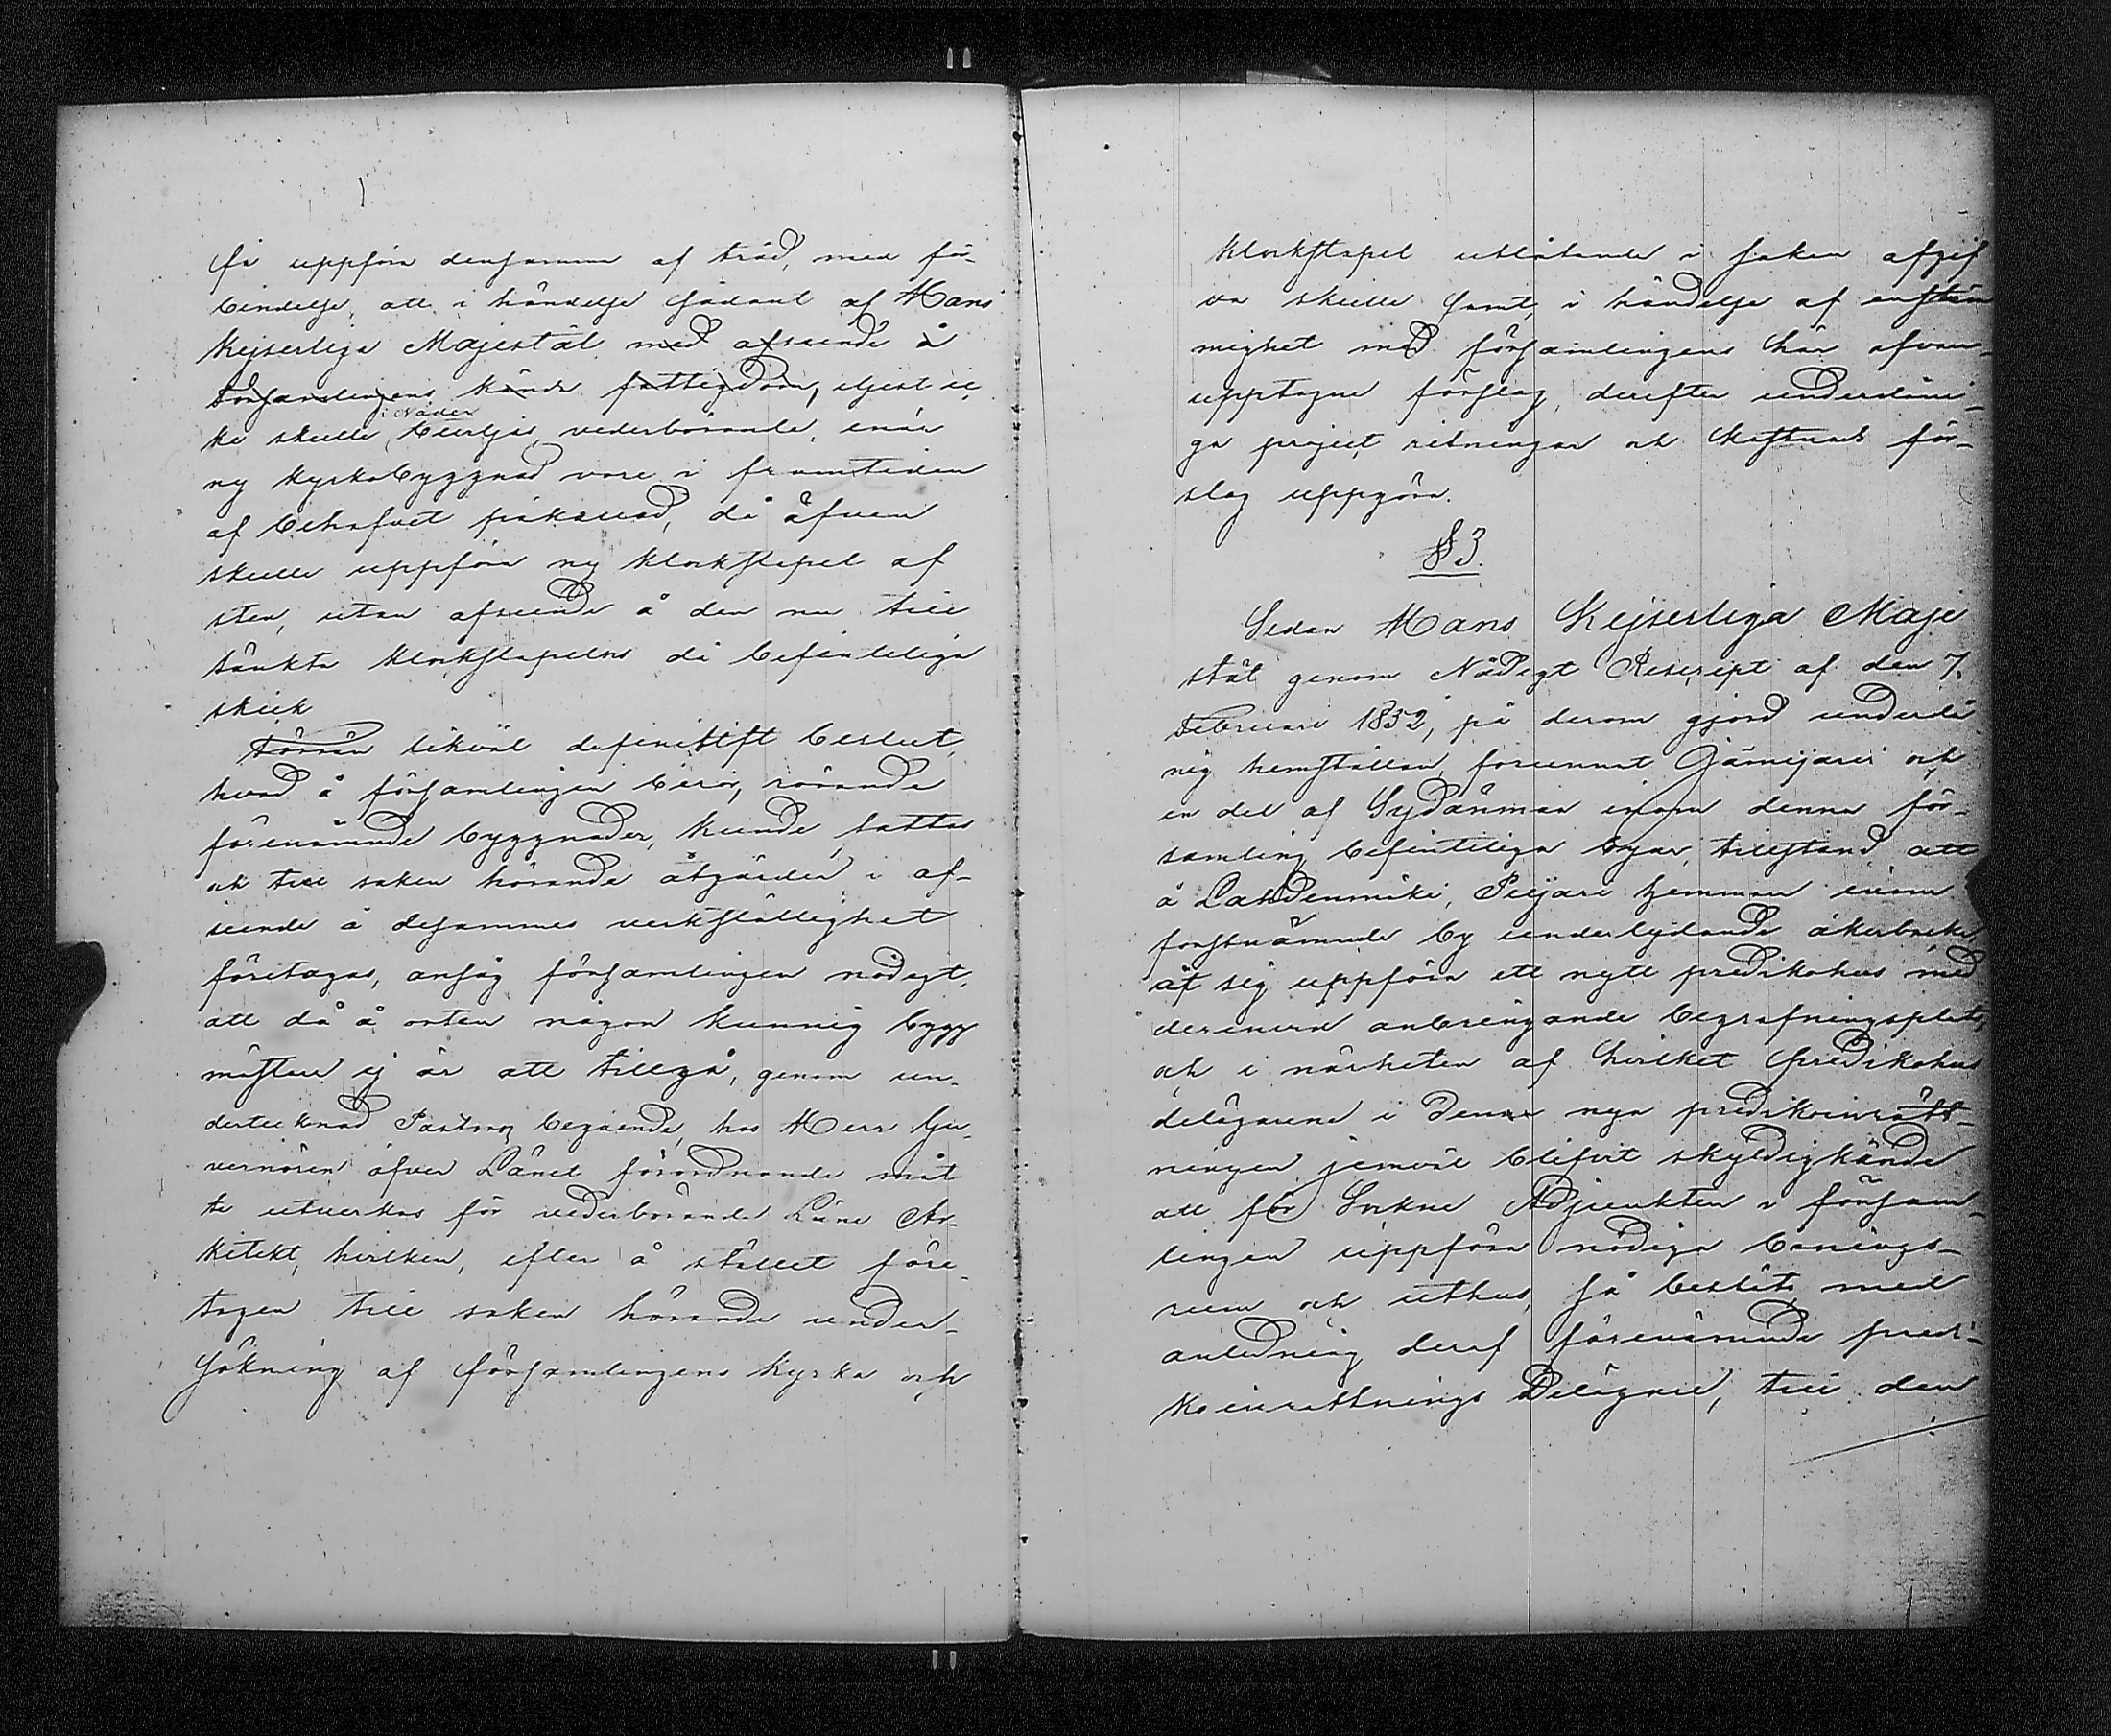 få uppföra densamma af träd, med för-
bindelse, att i händelse sådant af Hans
Kejserliga Majestät med afseende å
församlingens kända fattigdom, eljest ic
i Nåder
ke skulle beviljas, vederbörande, enär
ny kyrkobyggnad vore i framtiden
af behofvet påkallad, då äfven
skulle uppföra ny klockstapel af
sten, utan afseende å den nu till
tänkta klockstapelns då befintliga
skick
Förrän likväl definitift beslut,
hvad å församlingen beror, rörande
förenämnde byggnader, kunde fattas
och till saken hörande åtgärder i af-
seende å desammas verkställighet
företagas, ansåg församlingen nödigt,
att då å orten någon kunnig bygg
mästare ej är att tillgå, genom un-
dertecknad Pastors begående, hos Herr Gu-
vernören öfver Länet förordnande måt
te utverkas för vederbörande Läns Ar-
kitekt, hvilken, efter å stället före-
tagen till saken hörande under-
sökning af församlingens kyrka och
klockstapel utlåtande i saken afgif
va skulle samt, i händelse af enstäm
mighet med församlingens här ofvan-
upptagne förslag, derefter underdåni-
ga project ritningar och kostnads för-
slag uppgöra.
§ 3.
Sedan Hans Kejserliga Maje
stät genom Nådigt Rescript af den 7.
Februari 1852, på derom gjord underdå
nig hemställan, förunnat Jämijärvi och
en del af Sydänmaa inom denna för-
samling befintliga byar, tillstånd att
å Lahdenmäki, Peijari hemman inom
förstnämnde by underlydande åkerbacke,
åt sig uppföra ett nytt predikohus med
derinvid anbringande begrafningsplats,
och i närheten af hvilket predikohus
delägarene i denna nya predikoinrätt-
ningen jemväl blifvit skyldigkände
att för Sockne Adjunkten i försam-
lingen uppföra nödiga bonings-
rum och uthus, så beslöts med
anledning deraf förenämnde predi-
koinrättnings Delägare, till den